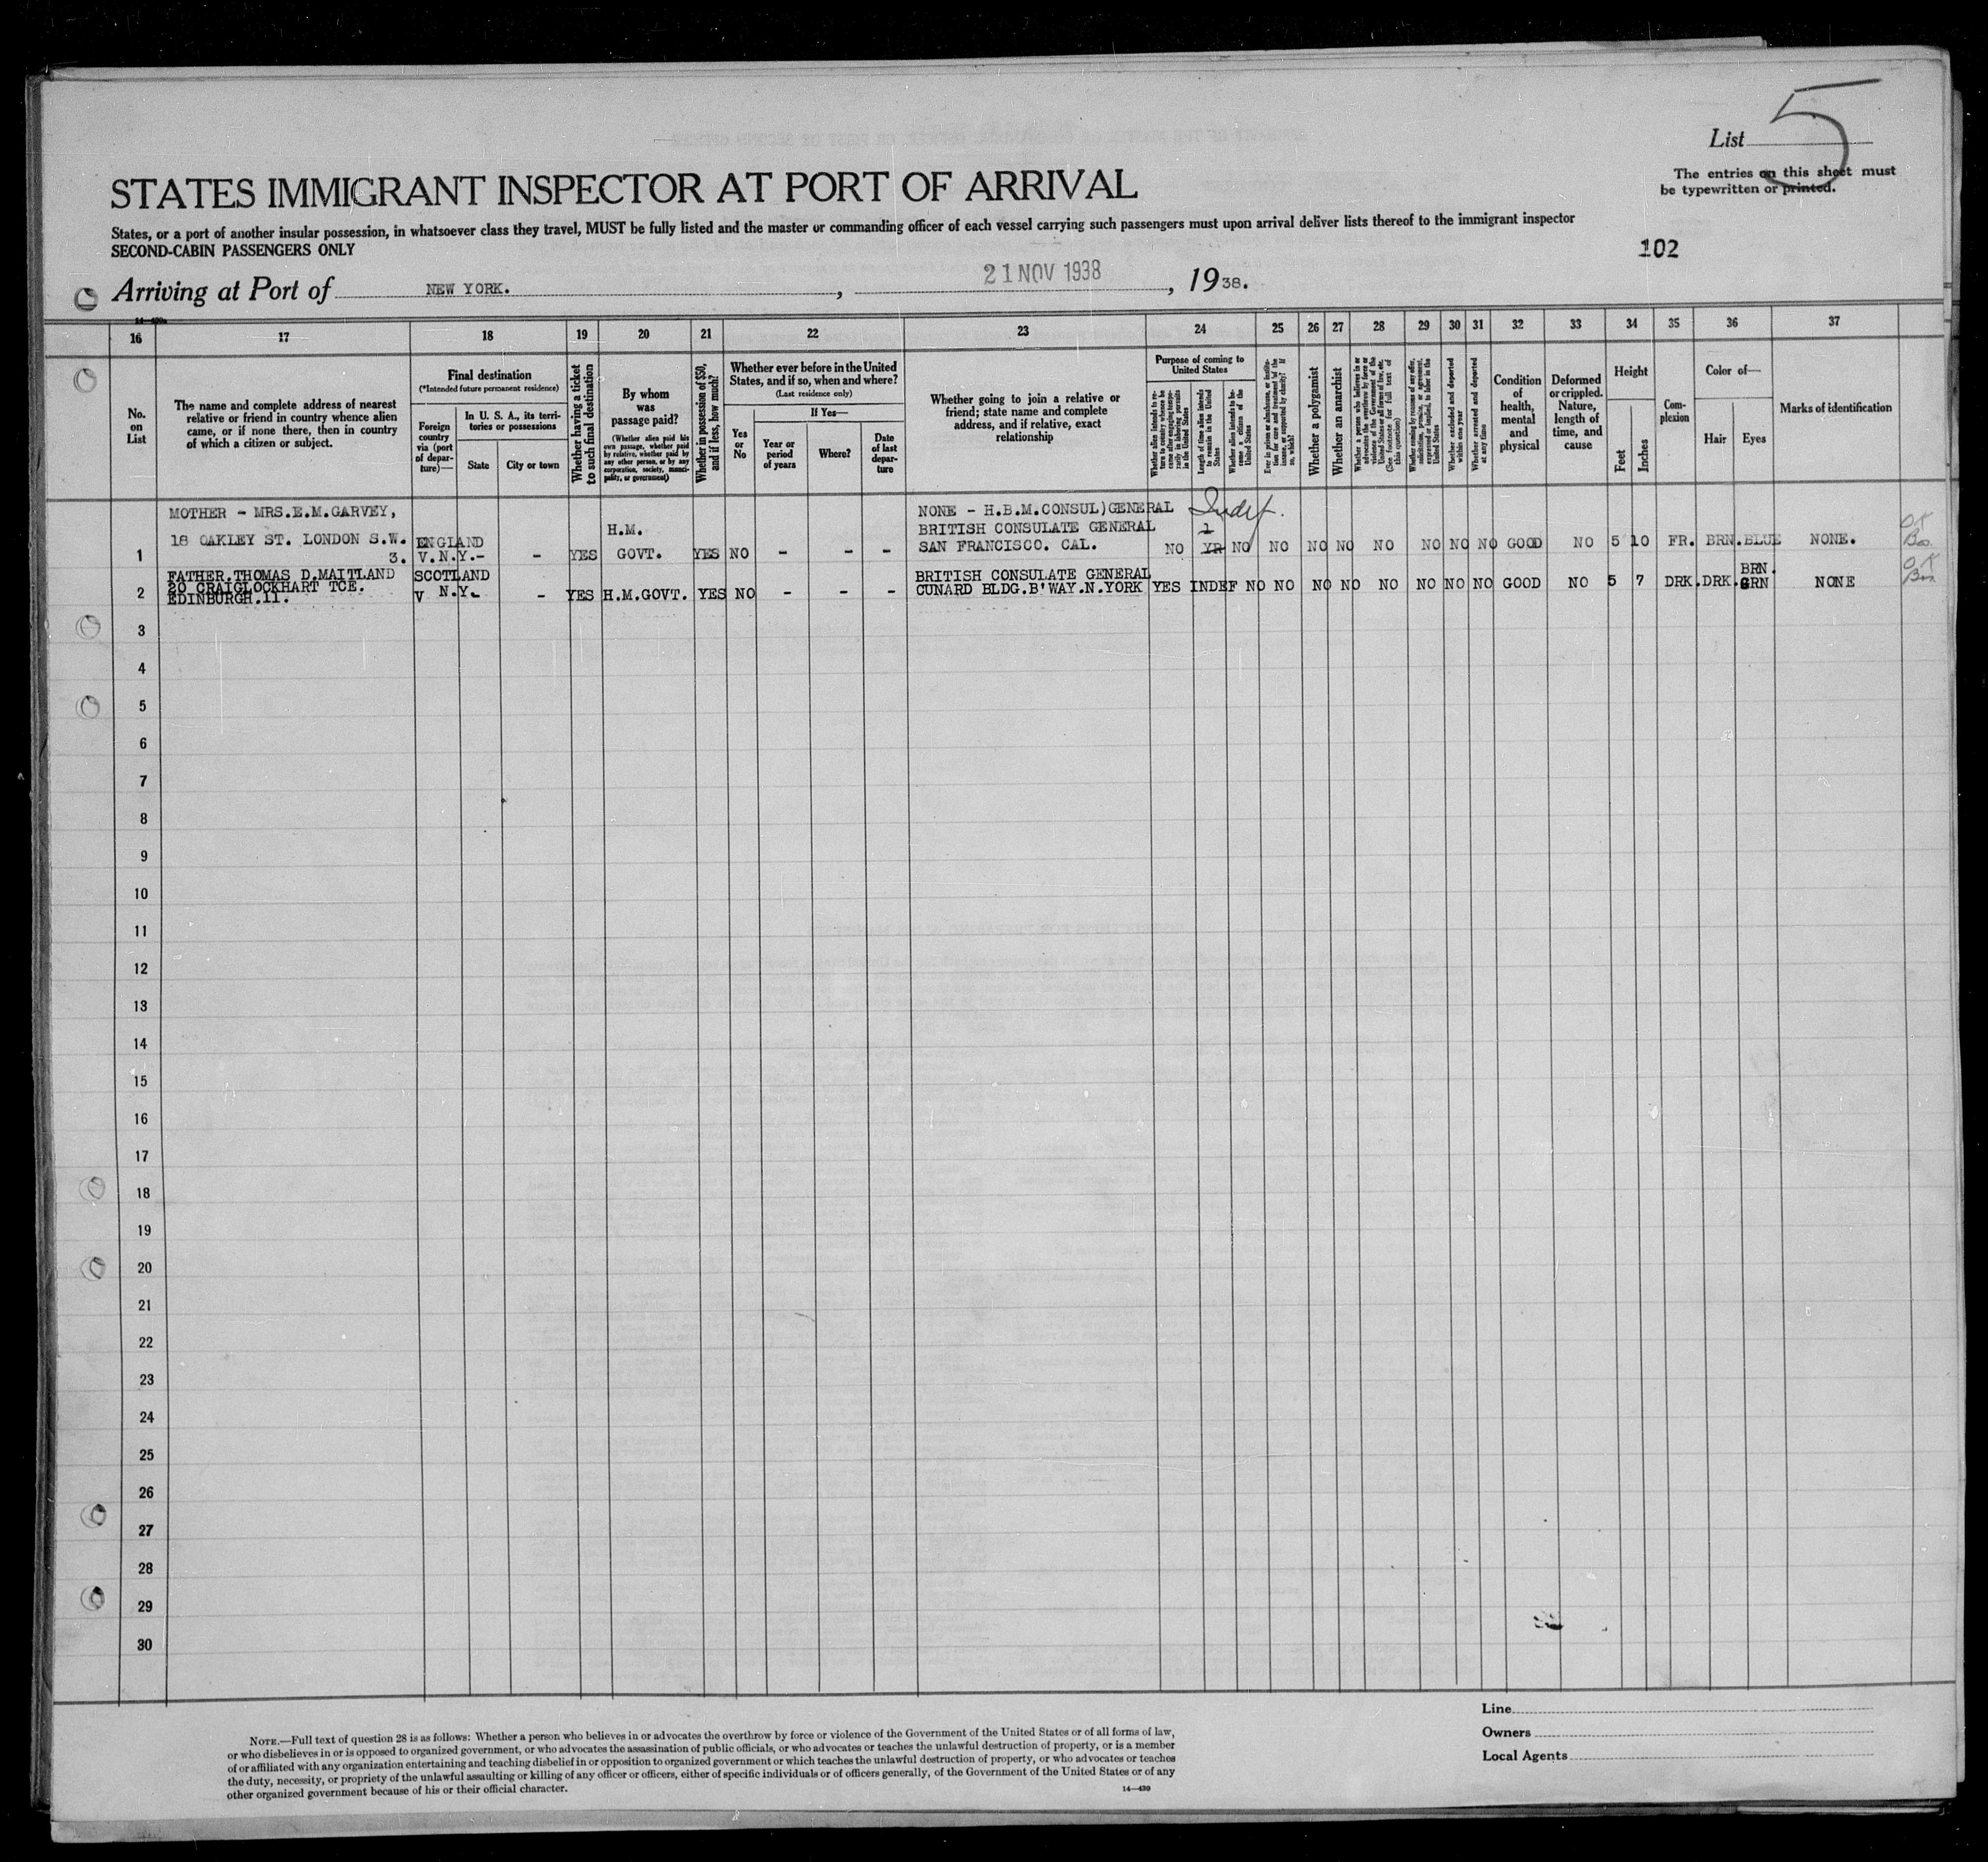 List 5
The entries on this sheet must
be typewritten or printed.
STATES IMMIGRANT INSPECTOR AT PORT OF ARRIVAL
States, or a port of another insular possession, in whatsoever class they travel, MUST be fully listed and the master or commanding officer of each vessel carrying such passengers must upon arrival deliver lists thereof to the immigrant inspector
SECOND-CABIN PASSENGERS ONLY
102
Arriving at Port of NEW YORK. , 21 NOV 1938 , 1938.
16 17 18 19 20 21 22 23 24 25 26 27 28 29 30 31 32 33 34 35 36 37
No. on List
The name and complete address of nearest
relative or friend in country whence alien
came, or if none there, then in country
of which a citizen or subject.
Final destination
(*Intended future permanent residence)
Foreign country via (port of departure)—
In U. S. A., its territories or possessions
State
City or town
Whether having a ticket to such final destination
By whom was passage paid?
(Whether alien paid his own passage, whether paid by relative, whether paid by any other person, or by any corporation, society, municipality, or government)
Whether in possession of $50, and if less, how much?
Whether ever before in the United
States, and if so, when and where?
(Last residence only)
Yes or No
If Yes—
Year or period of years
Where?
Date of last departure
Whether going to join a relative or
friend; state name and complete
address, and if relative, exact
relationship
Purpose of coming to
United States
Length of time alien intends to remain in the United States
Whether alien intends to become a citizen of the United States
Whether a polygamist
Whether an anarchist
Whether excluded and deported within one year
Whether arrested and deported at any time
Condition of health, mental and physical
Deformed or crippled. Nature, length of time, and cause
Height
Feet
Inches
Complexion
Color of—
Hair
Eyes
Marks of identification
MOTHER - MRS.E.M.GARVEY,
18 OAKLEY ST. LONDON S.W.
3.
1 ENGLAND V.N.Y.- - YES H.M. GOVT. YES NO - - - NONE - H.B.M.CONSUL)GENERAL
BRITISH CONSULATE GENERAL
SAN FRANCISCO. CAL. NO Indef. 1 YR NO NO NO NO NO NO NO NO GOOD NO 5 10 FR. BRN. BLUE NONE. OK
FATHER.THOMAS D.MAITLAND
20 CRAIGLOCKHART TCE.
EDINBURGH.11.
2 SCOTLAND V N.Y. - YES H.M.GOVT. YES NO - - - BRITISH CONSULATE GENERAL
CUNARD BLDG.B'WAY.N.YORK YES INDEF NO NO NO NO NO NO NO NO GOOD NO 5 7 DRK. DRK. BRN. GRN NONE OK
3
4
5
6
7
8
9
10
11
12
13
14
15
16
17
18
19
20
21
22
23
24
25
26
27
28
29
30
Line
Owners
Local Agents
NOTE.—Full text of question 28 is as follows: Whether a person who believes in or advocates the overthrow by force or violence of the Government of the United States or of all forms of law,
or who disbelieves in or is opposed to organized government, or who advocates the assassination of public officials, or who advocates or teaches the unlawful destruction of property, or is a member
of or affiliated with any organization entertaining and teaching disbelief in or opposition to organized government or which teaches the unlawful destruction of property, or who advocates or teaches
the duty, necessity, or propriety of the unlawful assaulting or killing of any officer or officers, either of specific individuals or of officers generally, of the Government of the United States or of any
other organized government because of his or their official character.
14—430